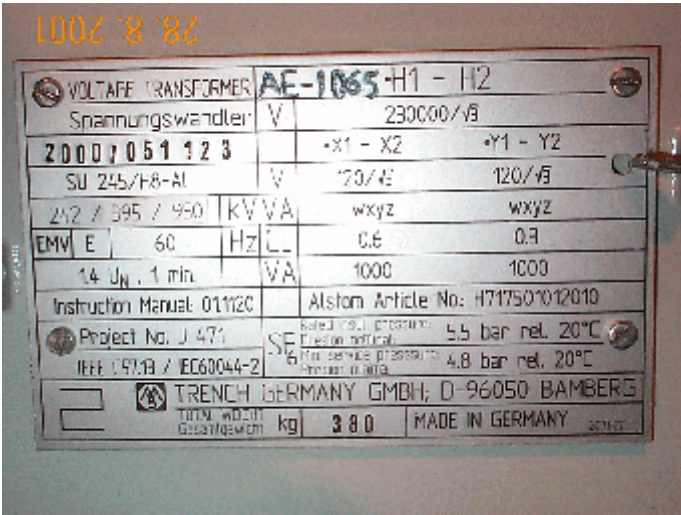 28. 8. 2001
VOLTAGE TRANSFORMER AE-1065 •H1 - H2
Spannungswandler V 230000/√3
2000/051 123 •X1 - X2 •Y1 - Y2
SU 245/H8-AL V 120/√3 120/√3
242 / 395 / 950 kV VA wxyz wxyz
EMV E 60 Hz CL 0.6
1.4 UN , 1 min. VA 1000 1000
Instruction Manual: 011120 Alstom Article No.: H717501012010
Project No. J 471 SF6 Rated insul. pressure: 5.5 bar rel. 20°C
Min. service pressure: 4.8 bar rel. 20°C
IEEE C57.13 / IEC60044-2
TRENCH GERMANY GMBH; D-96050 BAMBERG
TOTAL WEIGHT
Gesamtgewicht kg 380 MADE IN GERMANY